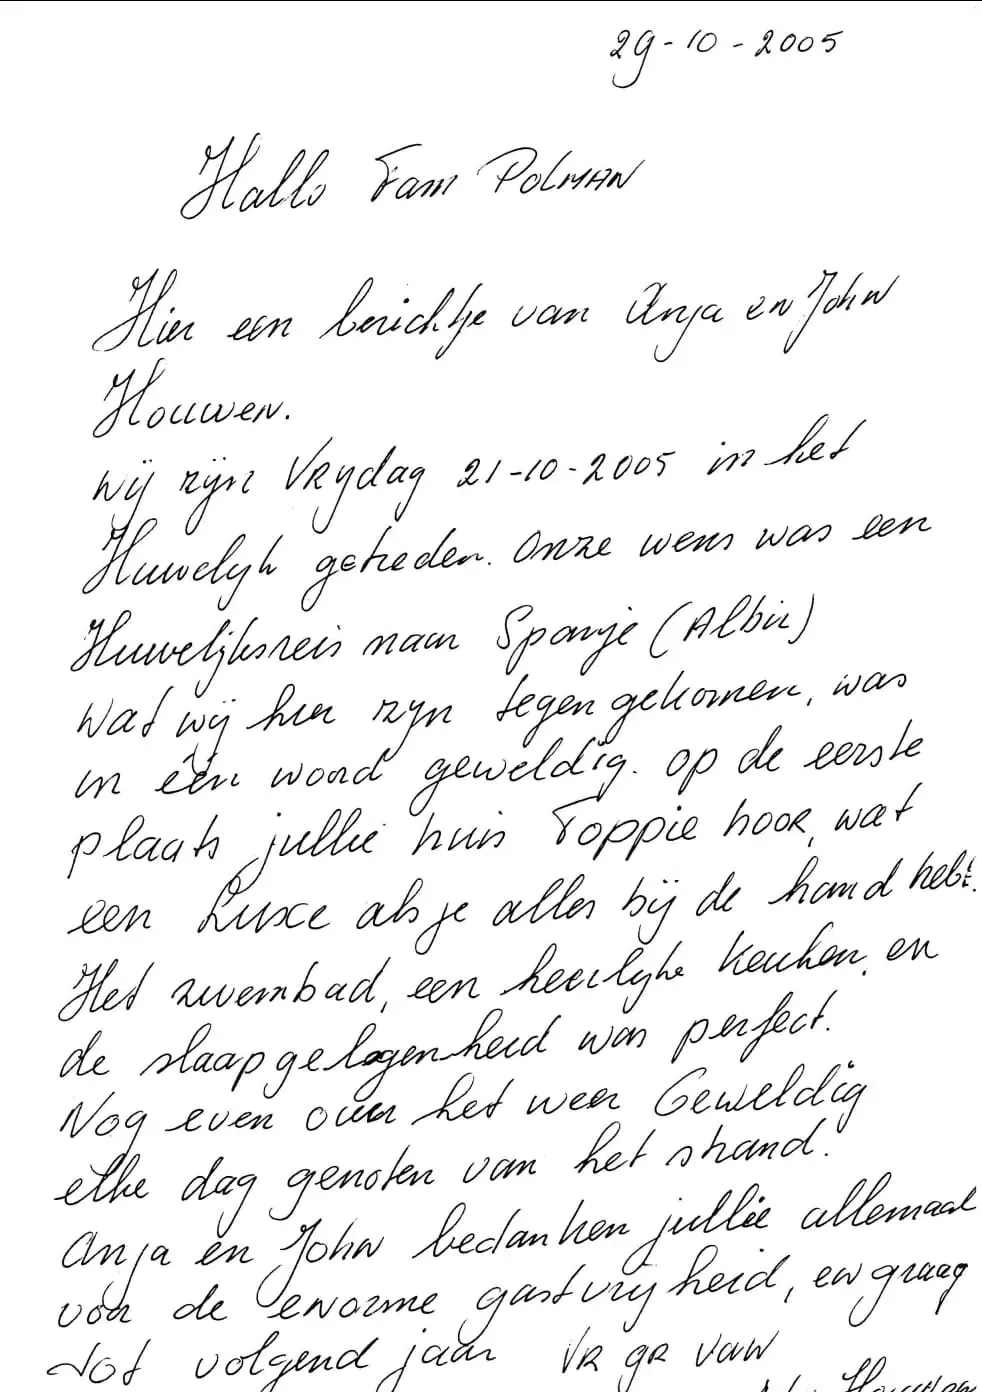 29-10-2005
Hallo Fam Polman
Hier een berichtje van Anja en John
Houwen.
wij zijn Vrijdag 21-10-2005 in het
Huwelijk getreden. Onze wens was een
Huwelijksreis naar Spanje (Albir)
Wat wij hier zijn tegen gekomen, was
in één woord geweldig. op de eerste
plaats jullie huis Toppie hoor, wat
een Luxe als je alles bij de hand hebt.
Het zwembad, een heerlijke keuken, en
de slaapgelegenheid was perfect.
Nog even over het weer Geweldig
elke dag genoten van het strand.
Anja en John bedanken jullie allemaal
voor de enorme gastvrijheid, en graag
tot volgend jaar VR GR van
Houwen